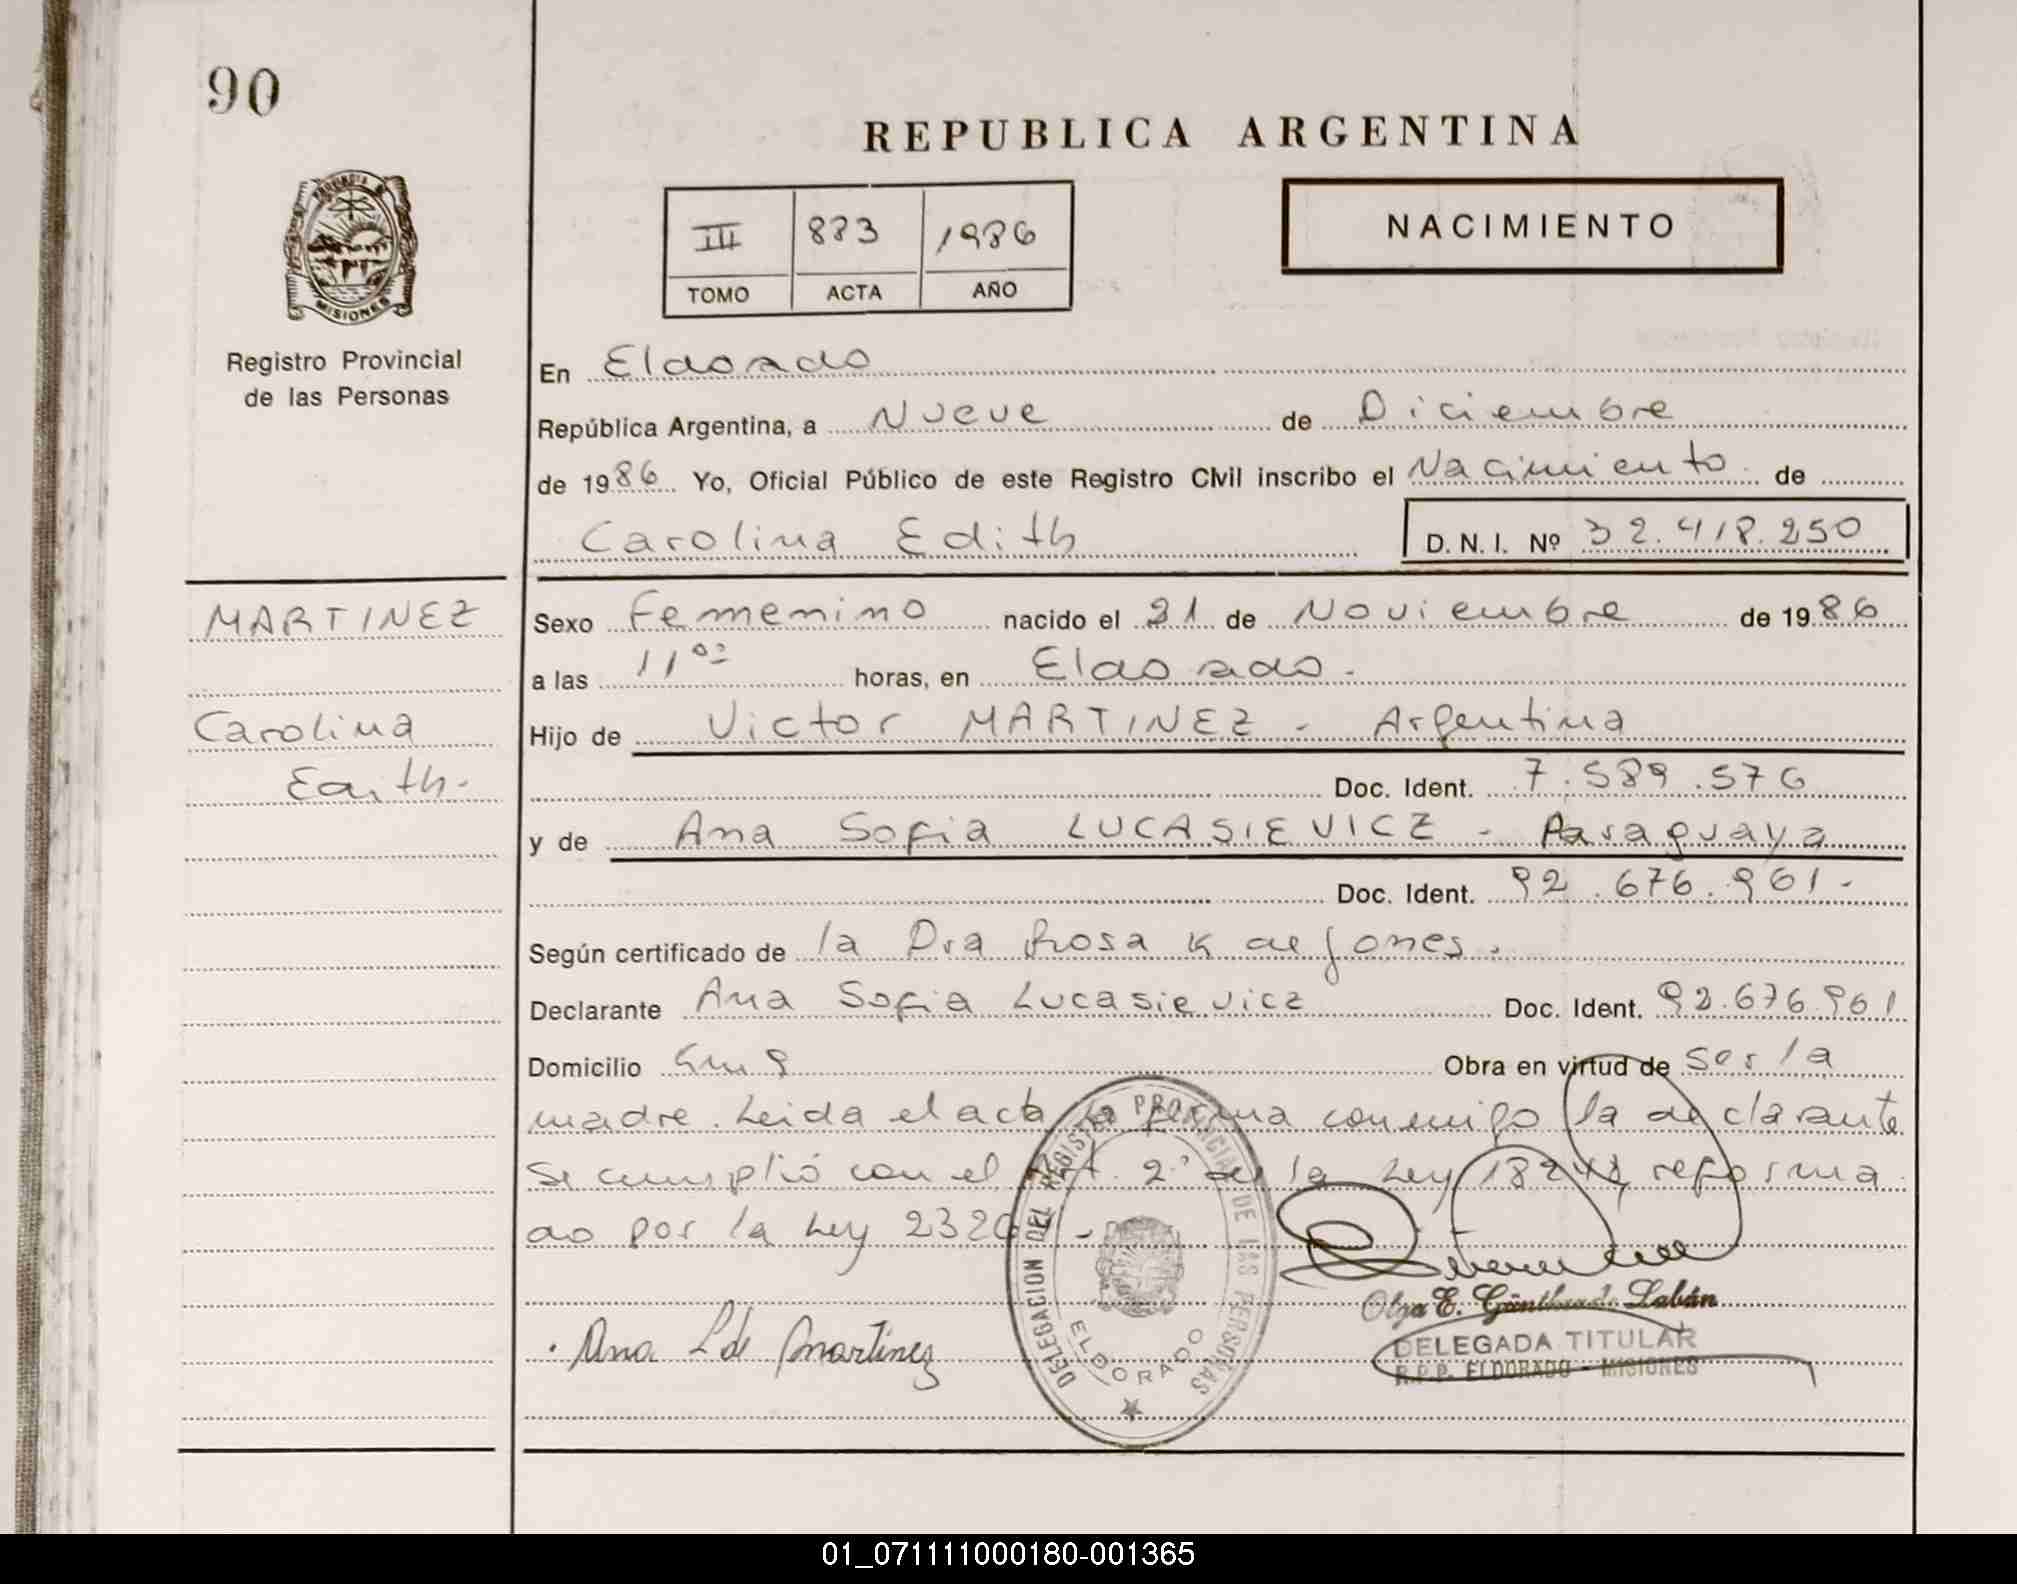 90
REPUBLICA ARGENTINA
III 883 1986
TOMO ACTA AÑO
NACIMIENTO
PROVINCIA DE
MISIONES
Registro Provincial
de las Personas
En Eldorado
República Argentina, a Nueve de Diciembre
de 1986 Yo, Oficial Público de este Registro Civil inscribo el Nacimiento de
Carolina Edith D.N.I. Nº 32.418.250
MARTINEZ
Carolina
Edith.
Sexo Femenino nacido el 21 de Noviembre de 1986
a las 11⁰⁰ horas, en Eldorado.
Hijo de Victor MARTINEZ - Argentina
Doc. Ident. 7.589.576
y de Ana Sofia LUCASIEVICZ - Paraguaya
Doc. Ident. 92.676.961.-
Según certificado de la Dra Rosa K de Jones.
Declarante Ana Sofia Lucasievicz Doc. Ident. 92.676.961
Domicilio Km 9 Obra en virtud de ser la
madre. Leida el acta la firma conmigo la declarante
Se cumplió con el Art. 2º de la Ley reforma
do por la Ley
Ana L de Martinez
DELEGACION DEL REGISTRO PROVINCIAL DE LAS PERSONAS
ELDORADO
Olga E. Günther de Labán
DELEGADA TITULAR
R.P.P. ELDORADO - MISIONES
01_071111000180-001365